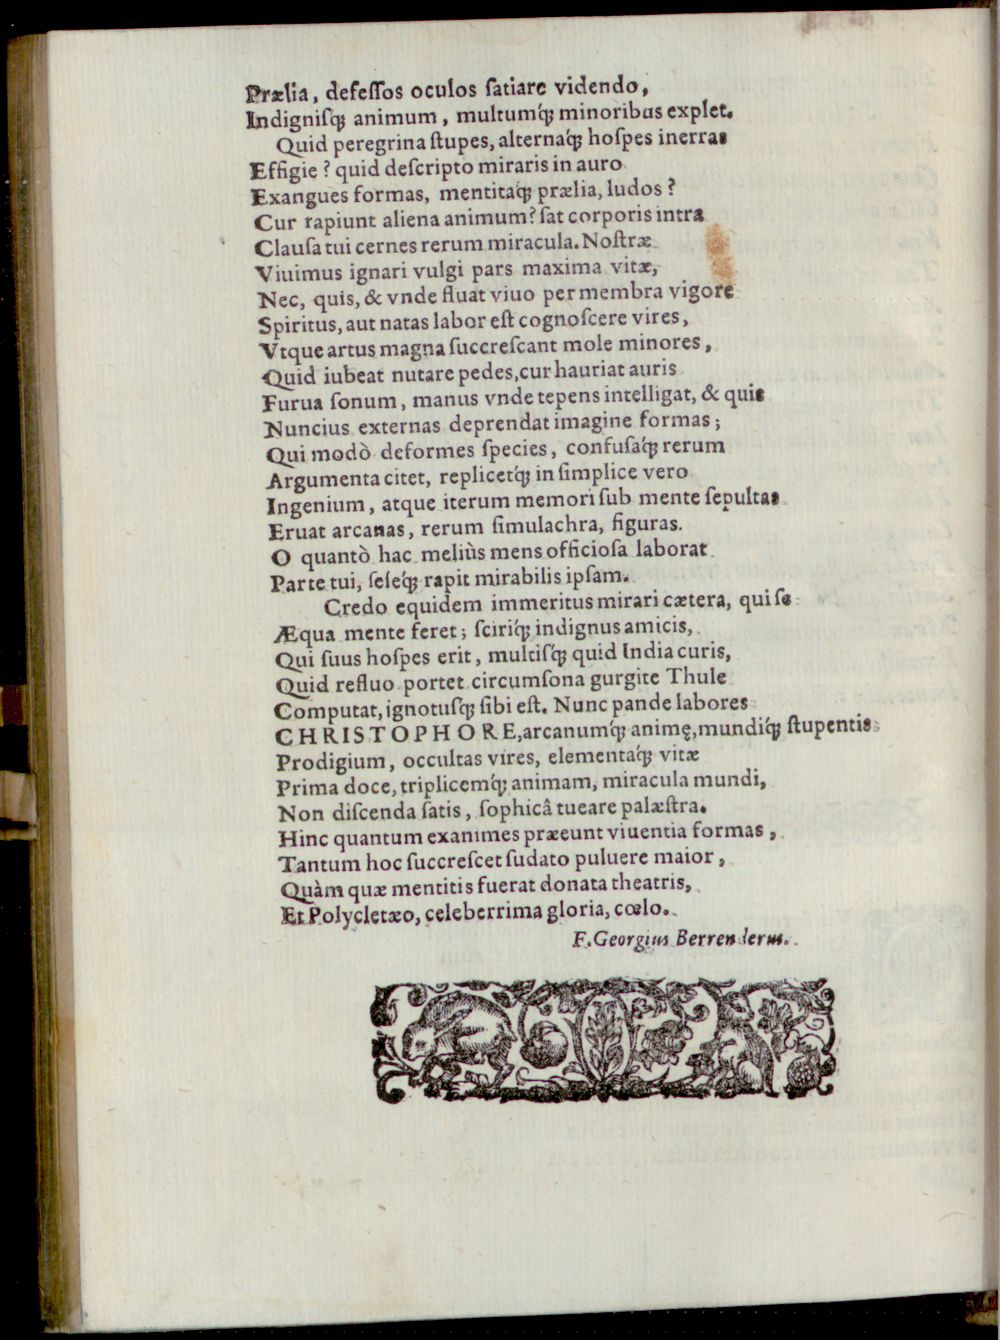 Prælia, defeſſos oculos ſatiare videndo,
Indigniſq́; animum, multumq́; minoribus explet.
Quid peregrina ſtupes, alternaq́; hoſpes inerras
Effigie? quid deſcripto miraris in auro
Exangues formas, mentitaq́; prælia, ludos?
Cur rapiunt aliena animum? ſat corporis intra
Clauſa tui cernes rerum miracula. Noſtræ
Viuimus ignari vulgi pars maxima vitæ,
Nec, quis, & vnde fluat viuo per membra vigore
Spiritus, aut natas labor eſt cognoſcere vires,
Vtque artus magna ſuccreſcant mole minores,
Quid iubeat nutare pedes, cur hauriat auris
Furua ſonum, manus vnde tepens intelligat, & quis
Nuncius externas deprendat imagine formas;
Qui modò deformes ſpecies, confuſaq́; rerum
Argumenta citet, replicetq́; in ſimplice vero
Ingenium, atque iterum memori ſub mente ſepultas
Eruat arcanas, rerum ſimulachra, figuras.
O quantò hac meliùs mens officioſa laborat
Parte tui, ſeſeq́; rapit mirabilis ipſam.
Credo equidem immeritus mirari cætera, qui ſe
Æqua mente feret; ſciriq́; indignus amicis,
Qui ſuus hoſpes erit, multiſq́; quid India curis,
Quid refluo portet circumſona gurgite Thule
Computat, ignotuſq́; ſibi eſt. Nunc pande labores
CHRISTOPHORE, arcanumq́; animę, mundiq́; ſtupentis
Prodigium, occultas vires, elementaq́; vitæ
Prima doce, triplicemq́; animam, miracula mundi,
Non diſcenda ſatis, ſophicâ tueare palæſtra.
Hinc quantum exanimes præeunt viuentia formas,
Tantum hoc ſuccreſcet ſudato puluere maior,
Quàm quæ mentitis fuerat donata theatris,
Et Polycletæo, celeberrima gloria, cœlo.
F. Georgius Berrenderus.